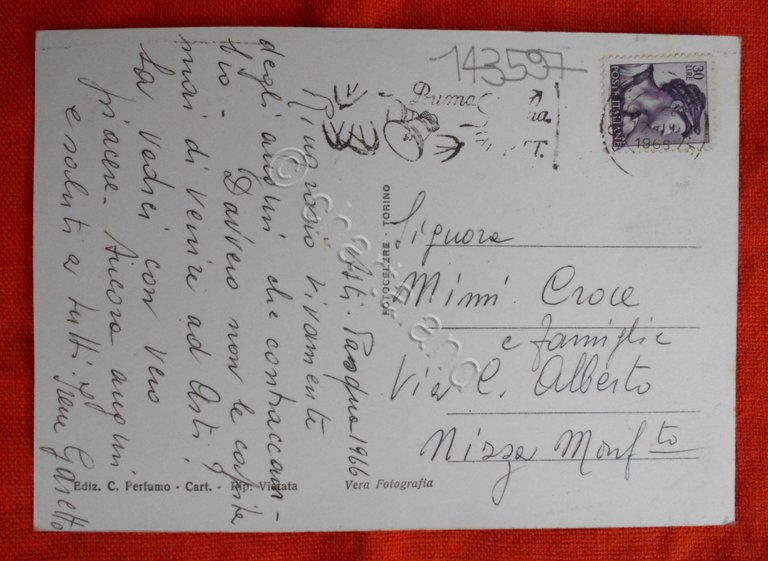 143597
Buona
30
LIRE
POSTE ITALIANE
1966
Asti. Pasqua 1966
Ringrazio vivamente
degli auguri che contraccam-
bio - Davvero non le capita
mai di venire ad Asti?
La vedrei con vero
piacere - Ancora auguri
e saluti a tutti.
Signora
Mimì Croce
e famiglie
Via C. Alberto
Nizza Monfto
FOTOCELERE - TORINO
Ediz. C. Perfumo - Cart. - Rip. Vietata
Vera Fotografia